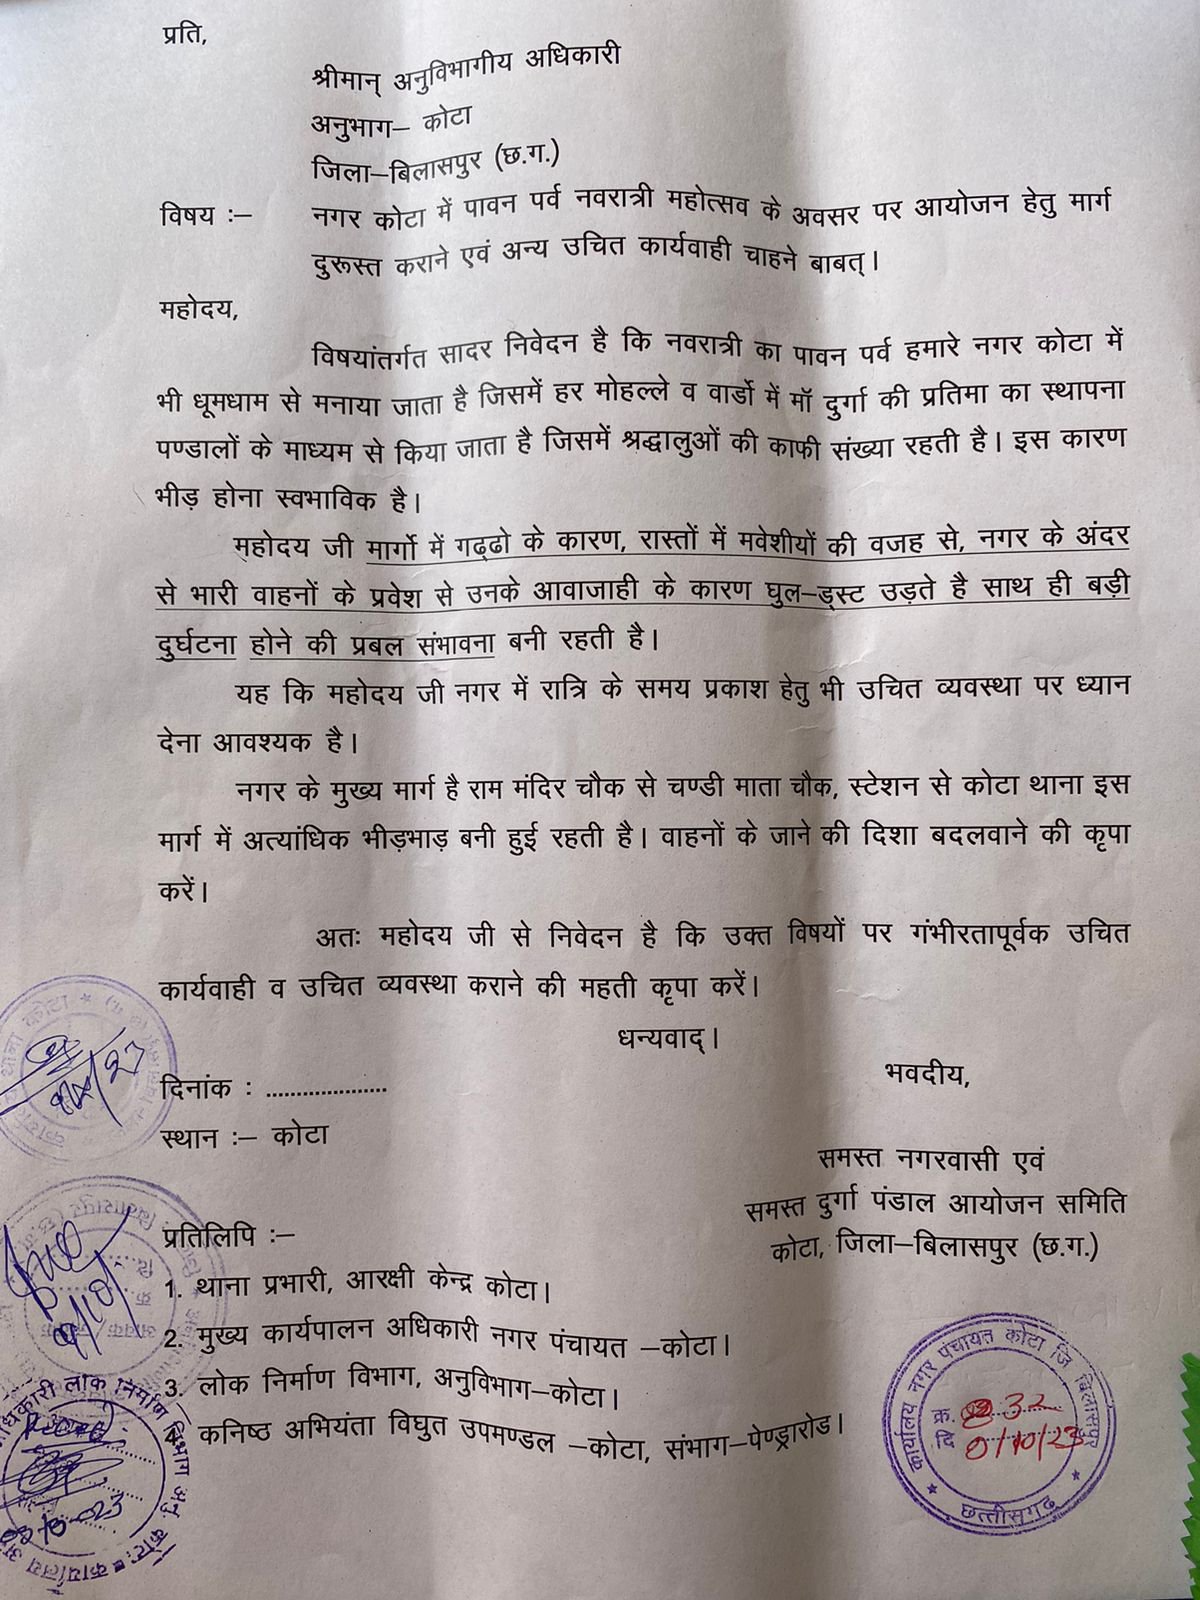 प्रति,
श्रीमान् अनुविभागीय अधिकारी
अनुभाग– कोटा
जिला–बिलासपुर (छ.ग.)
विषय :– नगर कोटा में पावन पर्व नवरात्री महोत्सव के अवसर पर आयोजन हेतु मार्ग
दुरूस्त कराने एवं अन्य उचित कार्यवाही चाहने बाबत्।
महोदय,
विषयांतर्गत सादर निवेदन है कि नवरात्री का पावन पर्व हमारे नगर कोटा में
भी धूमधाम से मनाया जाता है जिसमें हर मोहल्ले व वार्डो में मॉ दुर्गा की प्रतिमा का स्थापना
पण्डालों के माध्यम से किया जाता है जिसमें श्रद्धालुओं की काफी संख्या रहती है। इस कारण
भीड़ होना स्वभाविक है।
महोदय जी मार्गो में गढ्ढो के कारण, रास्तों में मवेशीयों की वजह से, नगर के अंदर
से भारी वाहनों के प्रवेश से उनके आवाजाही के कारण घुल–ड्स्ट उड़ते है साथ ही बड़ी
दुर्घटना होने की प्रबल संभावना बनी रहती है।
यह कि महोदय जी नगर में रात्रि के समय प्रकाश हेतु भी उचित व्यवस्था पर ध्यान
देना आवश्यक है।
नगर के मुख्य मार्ग है राम मंदिर चौक से चण्डी माता चौक, स्टेशन से कोटा थाना इस
मार्ग में अत्यांधिक भीड़भाड़ बनी हुई रहती है। वाहनों के जाने की दिशा बदलवाने की कृपा
करें।
अतः महोदय जी से निवेदन है कि उक्त विषयों पर गंभीरतापूर्वक उचित
कार्यवाही व उचित व्यवस्था कराने की महती कृपा करें।
धन्यवाद्।
भवदीय,
दिनांक : ....................
स्थान :– कोटा
समस्त नगरवासी एवं
समस्त दुर्गा पंडाल आयोजन समिति
कोटा, जिला–बिलासपुर (छ.ग.)
प्रतिलिपि :–
1. थाना प्रभारी, आरक्षी केन्द्र कोटा।
2. मुख्य कार्यपालन अधिकारी नगर पंचायत –कोटा।
3. लोक निर्माण विभाग, अनुविभाग–कोटा।
कनिष्ठ अभियंता विघुत उपमण्डल –कोटा, संभाग–पेण्ड्रारोड।
कार्यालय नगर पंचायत कोटा जि बिलासपुर
क्र.
दि /10/23
छत्तीसगढ़
थाना कोटा
लोक निर्माण विभाग